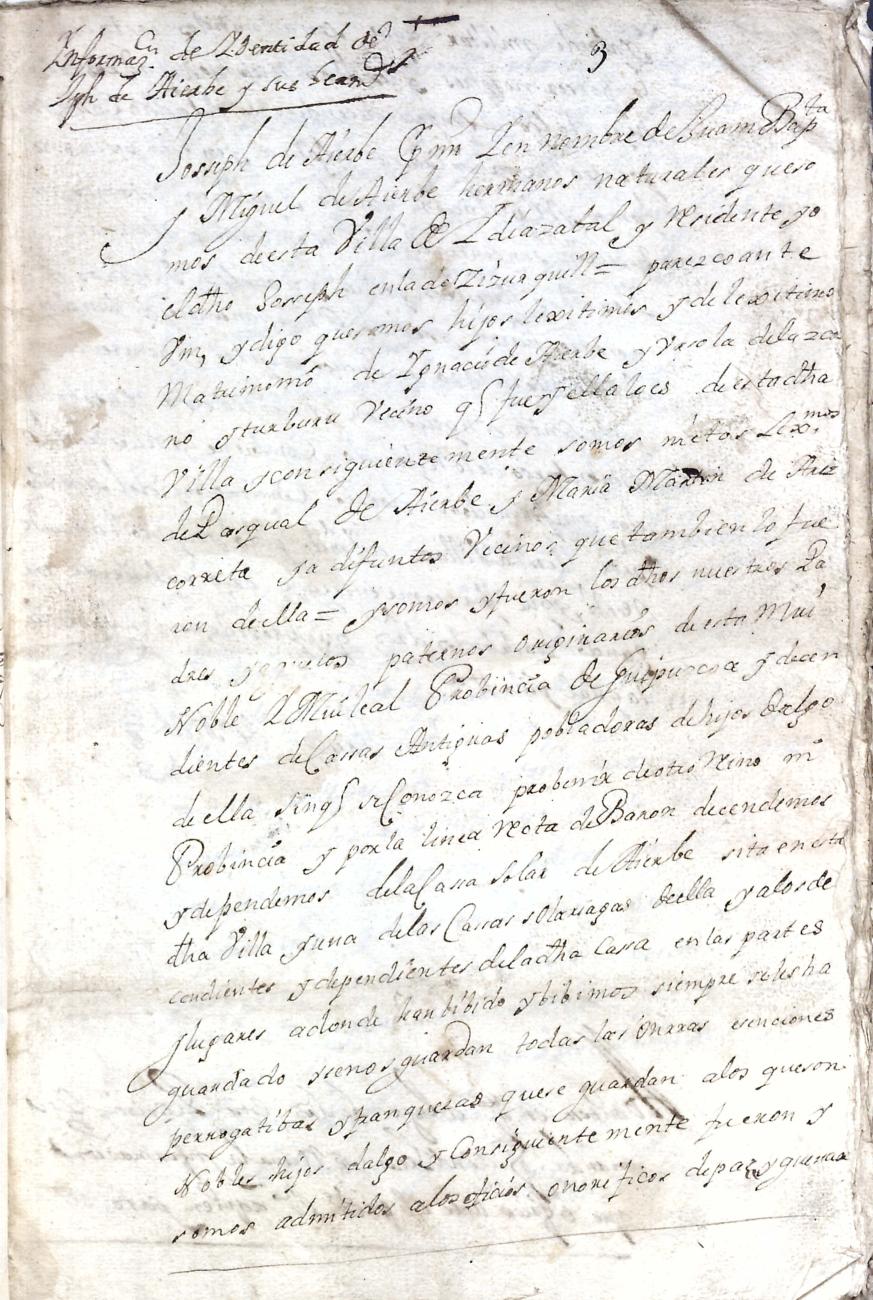 Informaꝯn de Ydentidad de
Jph de Aierbe y sus herm.os
3
Josseph de Aierbe Por mi Y en nombre de Juan Bap.ta
y Miguel de Aierbe hermanos naturales que so
mos de esta Villa de Ydiazabal y Residente yo
el dho Josseph en la de Zizurquill = parezco ante
Vm, y digo que somos hijos lexitimos y de lexitimo
Matrimonio de Ygnacio de Aierbe y Ursola de lazca
no yturburu Vecino q fue y ella lo es de esta dha
Villa y consiguientemente somos nietos Lex.mos
de Pasqual de Aierbe y Maria Martin de Ariz
correta ya difuntos Vecinos que tambien lo fue
ron de ella = y somos y fueron los dhos nuestros Pa
dres y aguelos paternos originarios de esta Mui
Noble Y Mui leal Probincia de Guipuzcoa y decen
dientes de Cassas Antiguas pobladoras de hijos dalgo
de ella sin q se Conozca probenir de otro Reino ni
Probincia y por la linea Recta de Baron decendemos
y dependemos de la Cassa solar de Aierbe sita en esta
dha Villa y una de las Cassas solariagas de ella y a los de
cendientes y dependientes de la dha Cassa en las partes
y lugares a donde han bibido y bibimos siempre se les ha
guardado y se nos guardan todas las onrras esenciones
perrogatibas y franquesas que se guardan a los que son
Nobles hijos dalgo y Consiguientemente fueron y
somos admitidos a los oficios onorificos de paz y guerra